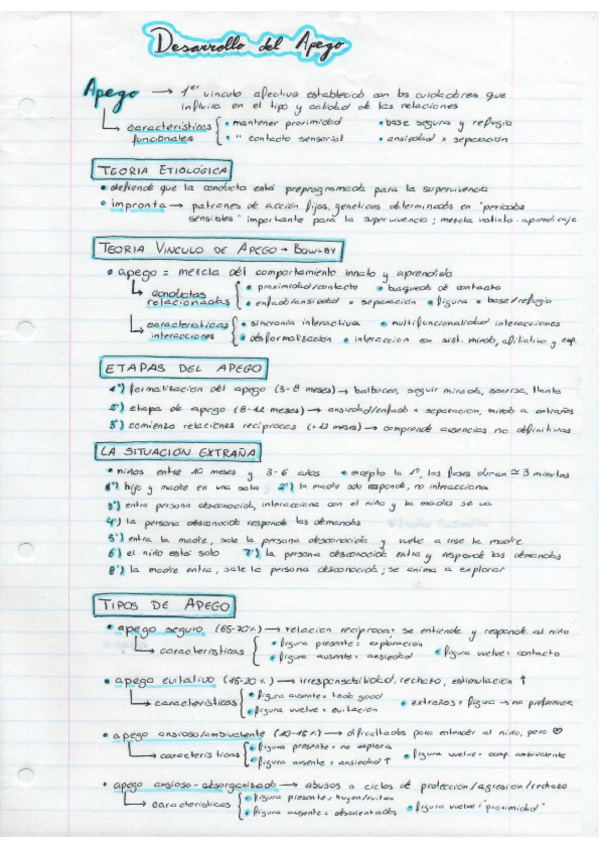 Desarrollo del Apego
Apego → 1er vinculo afectivo establecido con los cuidadores que
influira en el tipo y calidad de las relaciones
características funcionales { • mantener proximidad • base segura y refugio
• " contacto sensorial • ansiedad x separación
TEORIA ETIOLÓGICA
• defiende que la conducta está preprogramada para la supervivencia
• impronta → patrones de acción fijos, geneticos determinados en "periodos
sensibles" importante para la supervivencia; mezcla instinto-aprendizaje
TEORIA VINCULO DE APEGO → BOWLBY
• apego = mezcla del comportamiento innato y aprendido
conductas relacionadas { • proximidad/contacto • busqueda de contacto
• enfado/ansiedad x separación • figura = base/refugio
características interacciones { • sincronía interactiva • multifuncionalidad interacciones
• desformalización • interaccion con sist. miedo, afiliativo y exp.
ETAPAS DEL APEGO
1º) formalización del apego (3-8 meses) → balbuceo, seguir mirada, sonrisa, llanto
2º) etapa de apego (8-12 meses) → ansiedad/enfado x separacion, miedo a extraños
3º) comienzo relaciones reciprocas (+12 meses) → comprende ausencias no definitivas
LA SITUACIÓN EXTRAÑA
• niños entre 10 meses y 3-6 años • excepto la 1º, las fases duran ≅ 3 minutos
1º) hijo y madre en una sala 2º) la madre solo responde, no interacciona
3º) entra persona desconocida, interacciona con el niño y la madre se va
4º) la persona desconocida responde las demandas
5º) entra la madre, sale la persona desconocida y vuelve a irse la madre
6º) el niño está solo 7º) la persona desconocida entra y responde las demandas
8º) la madre entra, sale la persona desconocida; se anima a explorar
TIPOS DE APEGO
• apego seguro (65-70%) → relacion reciproca: se entiende y responde al niño
características { • figura presente = exploración • figura vuelve = contacto
• figura ausente = ansiedad
• apego evitativo (15-20%) → irresponsabilidad, rechazo, estimulación ↑
características { • figura ausente = todo good • extraños = figura → no preferencia
• figura vuelve = evitación
• apego ansioso/ambivalente (10-15%) → dificultades para entender al niño, pero ♡
características { • figura presente = no explora • figura vuelve = comp. ambivalente
• figura ausente = ansiedad ↑
• apego ansioso-desorganizado → abusos o ciclos de protección/agresion/rechazo
características { • figura presente = huyen/evitan • figura vuelve = "proximidad"
• figura ausente = desorientados